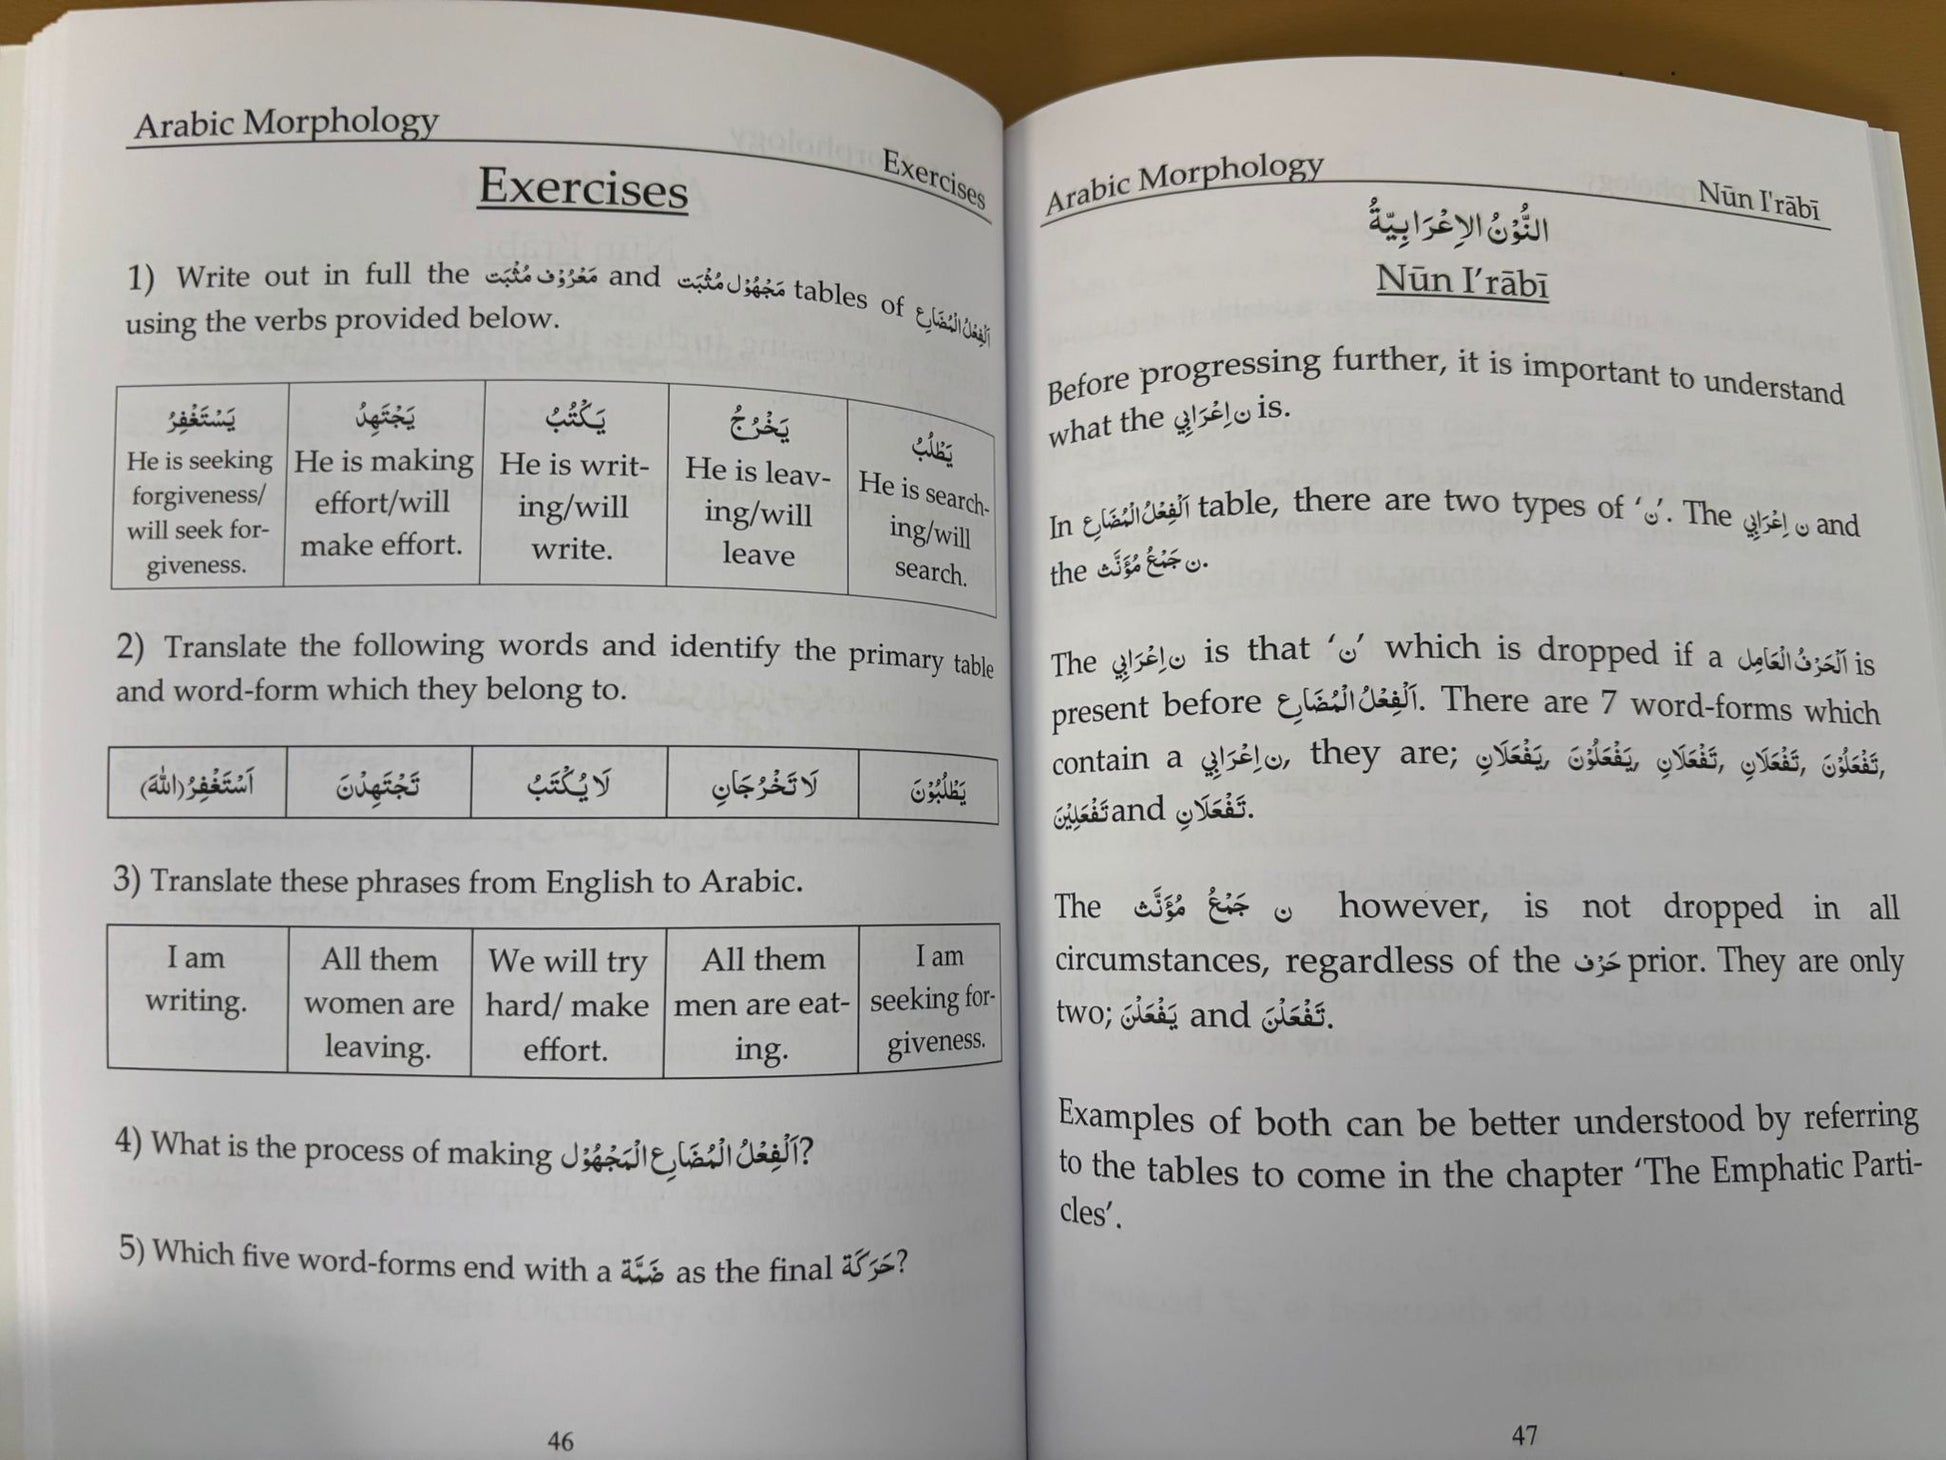 Arabic Morphology
Exercises
Exercises
1) Write out in full the مَعْرُوْف مُثْبَت and مَجْهُوْل مُثْبَت tables of اَلْفِعْلُ الْمُضَارِع
using the verbs provided below.
يَسْتَغْفِرُ
He is seeking
forgiveness/
will seek for-
giveness.
يَجْتَهِدُ
He is making
effort/will
make effort.
يَكْتُبُ
He is writ-
ing/will
write.
يَخْرُجُ
He is leav-
ing/will
leave
يَطْلُبُ
He is search-
ing/will
search.
2) Translate the following words and identify the primary table
and word-form which they belong to.
اَسْتَغْفِرُ(اللهَ)
تَجْتَهِدْنَ
لَا يُكْتَبُ
لَا تَخْرُجَانِ
يَطْلُبُوْنَ
3) Translate these phrases from English to Arabic.
I am
writing.
All them
women are
leaving.
We will try
hard/ make
effort.
All them
men are eat-
ing.
I am
seeking for-
giveness.
4) What is the process of making اَلْفِعْلُ الْمُضَارِع الْمَجْهُوْل?
5) Which five word-forms end with a ضَمَّة as the final حَرَكَة?
46
Arabic Morphology
Nūn I'rābī
النُّوْنُ الاِعْرَابِيَّةُ
Nūn I'rābī
Before progressing further, it is important to understand
what the ن اِعْرَابِي is.
In اَلْفِعْلُ الْمُضَارِع table, there are two types of ‘ن’. The ن اِعْرَابِي and
the ن جَمْعُ مُؤَنَّث.
The ن اِعْرَابِي is that ‘ن’ which is dropped if a اَلْحَرْفُ الْعَامِل is
present before اَلْفِعْلُ الْمُضَارِع. There are 7 word-forms which
contain a ن اِعْرَابِي, they are; يَفْعَلَانِ, يَفْعَلُوْنَ, تَفْعَلَانِ, تَفْعَلَانِ, تَفْعَلُوْنَ,
تَفْعَلِيْنَ and تَفْعَلَانِ.
The ن جَمْعُ مُؤَنَّث however, is not dropped in all
circumstances, regardless of the حَرْف prior. They are only
two; يَفْعَلْنَ and تَفْعَلْنَ.
Examples of both can be better understood by referring
to the tables to come in the chapter ‘The Emphatic Parti-
cles’.
47